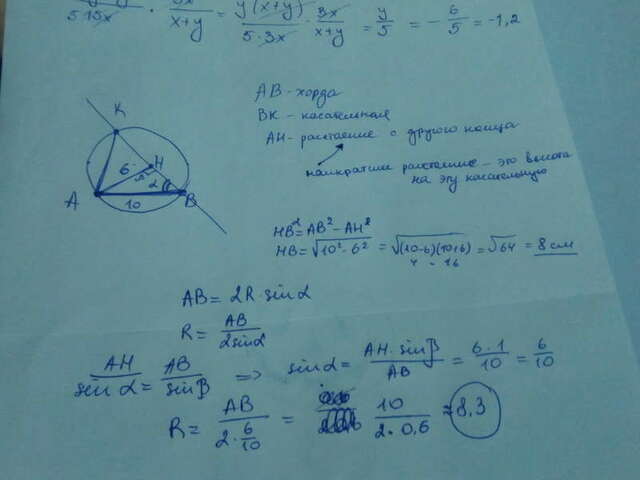 5·15x · 3x/x+y = y(x+y)/5·3x · 3x/x+y = y/5 = -6/5 = -1,2
AB - хорда
BK - касательная
AH - расстояние с другого конца
наикратчие расстояние - это высота
на эту касательную
K
6
H
α
A
10
B
HB² = AB² - AH²
HB = √10² - 6² = √(10-6)(10+6) = √64 = 8 см
4 · 16
AB = 2R · sinα
R = AB/2sinα
AH/sinα = AB/sinβ => sinα = AH · sinβ/AB = 6·1/10 = 6/10
R = AB/2·6/10 = 10/2·0,6 = 8,3